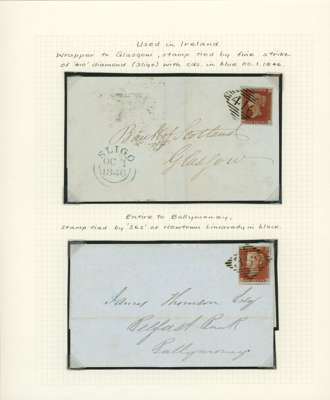 Used in Ireland
Wrapper to Glasgow, stamp tied by fine strike
of diamond (Sligo) with cds. in blue 1846.
SLIGO
OC
1846
Bank of Scotland
Glasgow
Entire to Ballymoney,
stamp tied by '362' of Newtown Limavady in black
James Thomson Esq
Belfast Bank
Ballymoney